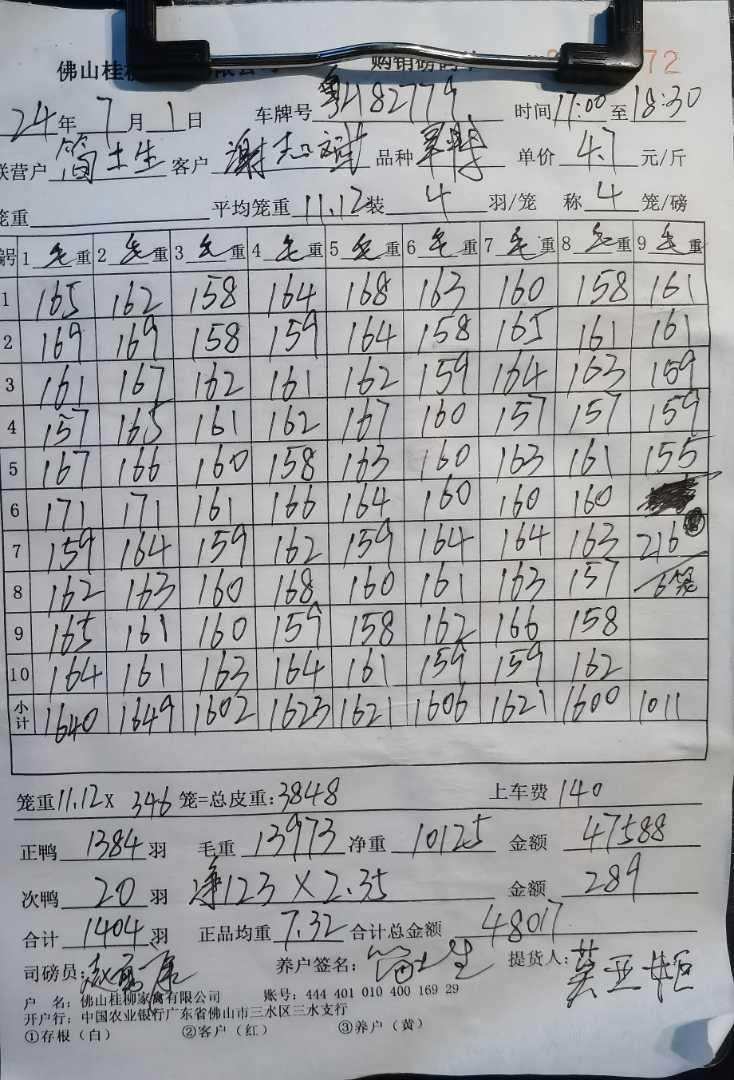 佛山桂 购销磅码单 72
24年7月1日 车牌号 粤H82779 时间17:00至18:30
联营户 简土生 客户 谢志斌 品种 单价 4.7 元/斤
笼重 平均笼重 11.12 装 4 羽/笼 称 4 笼/磅
编号 1 毛重 2 毛重 3 毛重 4 毛重 5 毛重 6 毛重 7 毛重 8 毛重 9 毛重
1 165 162 158 164 168 163 160 158 161
2 169 169 158 159 164 158 165 161 161
3 161 167 162 161 162 159 164 163 159
4 157 165 161 162 167 160 157 157 159
5 167 166 160 158 163 160 163 161 155
6 171 171 161 166 164 160 160 160
7 159 164 159 162 159 164 164 163 216
8 162 163 160 168 160 161 163 157 6笼
9 165 161 160 159 158 162 166 158
10 164 161 163 164 161 159 159 162
小计 1640 1649 1602 1623 1621 1606 1621 1600 1011
笼重11.12 x 346 笼=总皮重:3848 上车费 140
正鸭 1384 羽 毛重 13973 净重 10125 金额 47588
次鸭 20 羽 净123 X 2.35 金额 289
合计 1404 羽 正品均重 7.32 合计总金额 48017
司磅员: 养户签名: 简土生 提货人:
户 名: 佛山桂柳家禽有限公司 账号: 444 401 010 400 169 29
开户行: 中国农业银行广东省佛山市三水区三水支行
①存根(白) ②客户(红) ③养户(黄)